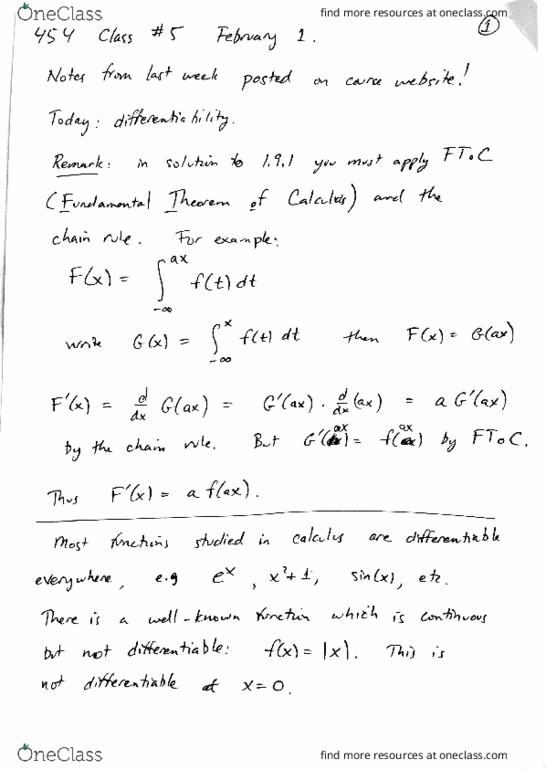 OneClass find more resources at oneclass.com
1
454 Class #5 February 1.
Notes from last week posted on course website!
Today: differentiability.
Remark: in solution to 1.9.1 you must apply FToC
(Fundamental Theorem of Calculus) and the
chain rule. For example:
F(x) = ∫_{-∞}^{ax} f(t) dt
write G(x) = ∫_{-∞}^{x} f(t) dt then F(x) = G(ax)
F'(x) = d/dx G(ax) = G'(ax) · d/dx (ax) = a G'(ax)
by the chain rule. But G'(ax) = f(ax) by FToC.
Thus F'(x) = a f(ax).
Most functions studied in calculus are differentiable
everywhere, e.g e^x, x²+1, sin(x), etc.
There is a well-known function which is continuous
but not differentiable: f(x) = |x|. This is
not differentiable at x=0.
OneClass find more resources at oneclass.com